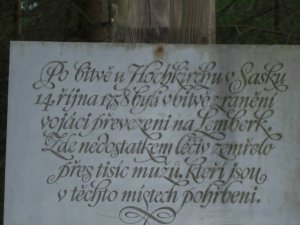 Po bitvě u Hochkirchu v Sasku
14. října 1758 byli v bitvě zranění
vojáci převezeni na Lemberk.
Zde nedostatkem léčiv zemřelo
přes tisíc mužů, kteří jsou
v těchto místech pohřbeni.